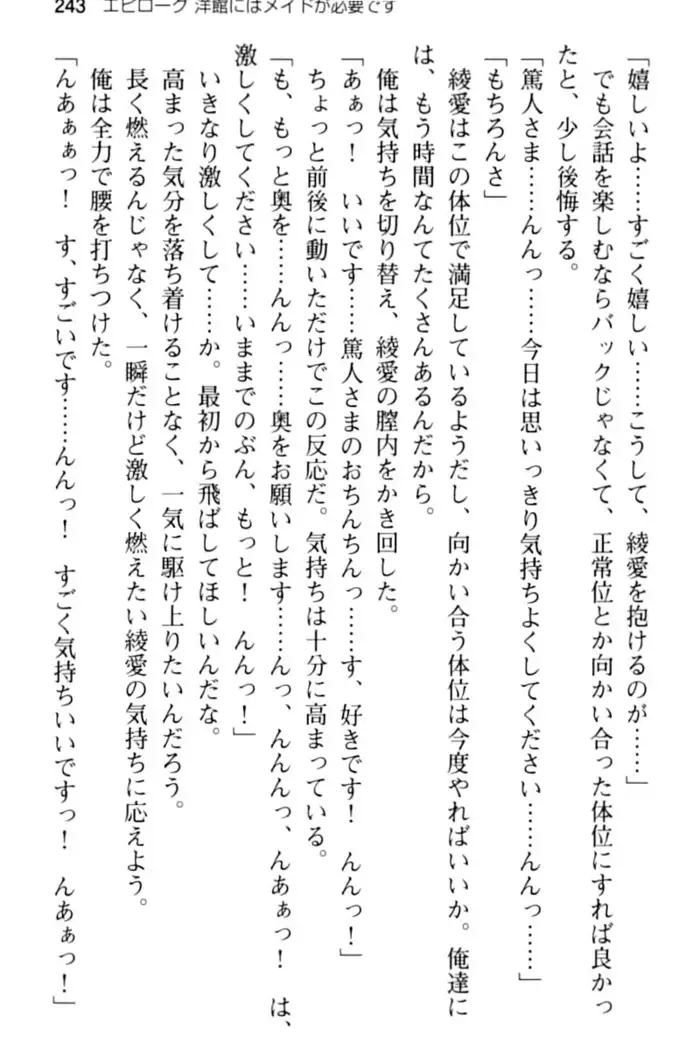 243 エピローグ 洋館にはメイドが必要です
「嬉しいよ……すごく嬉しい……こうして、綾愛を抱けるのが……」
でも会話を楽しむならバックじゃなくて、正常位とか向かい合った体位にすれば良かっ
たと、少し後悔する。
「篤人さま……んんっ……今日は思いっきり気持ちよくしてください……んんっ……」
「もちろんさ」
綾愛はこの体位で満足しているようだし、向かい合う体位は今度やればいいか。俺達に
は、もう時間なんてたくさんあるんだから。
俺は気持ちを切り替え、綾愛の膣内をかき回した。
「あぁっ！　いいです……篤人さまのおちんちんっ……す、好きです！　んんっ！」
ちょっと前後に動いただけでこの反応だ。気持ちは十分に高まっている。
「も、もっと奥を……んんっ……奥をお願いします……んっ、んんんっ、んあぁっ！　は、
激しくしてください……いままでのぶん、もっと！　んんっ！」
いきなり激しくして……か。最初から飛ばしてほしいんだな。
高まった気分を落ち着けることなく、一気に駆け上りたいんだろう。
長く燃えるんじゃなく、一瞬だけど激しく燃えたい綾愛の気持ちに応えよう。
俺は全力で腰を打ちつけた。
「んあぁぁっ！　す、すごいです……んんっ！　すごく気持ちいいですっ！　んあぁっ！」